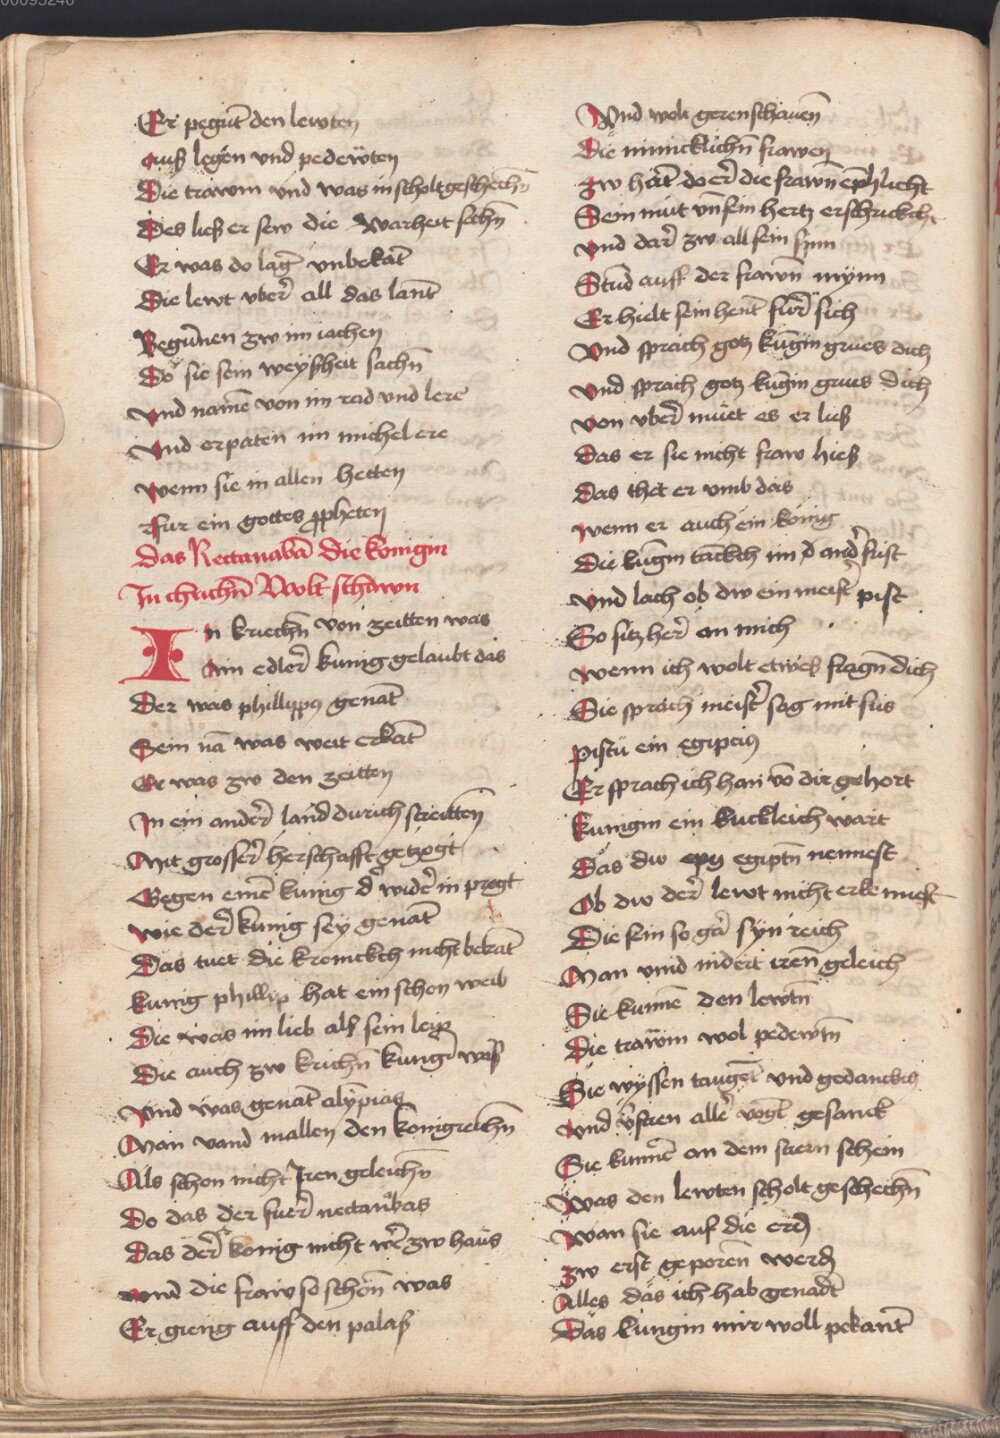 00095240
Er pegūt den lewten
auß legen vnd pedewten
Die trawm vnd was in scholt geschechn̄
Des ließ er sew die warheit sechn̄
Er was do lāg vnbekāt
Die lewt vber all das lant
Begūnen zw im iachen
Do sie sein weyßheit sachn̄
vnd namē von im rad vnd lere
vnd erpaten im michel ere
wenn sie in allen hetten
Fur ein gottes ꝓpheten
das Nectanabā die konigin
In chrichn̄ Wolt schawn
In kriechn̄ von zeitten was
Ain edler kunig gelaubt das
Der was phillippꝰ genāt
Sein nā was weit erkāt
Er was zw den zeitten
In ein ander land durich streittn̄
Mit grosser herschafft getzogt
Gegen einē kunig d̛ wider in progt
wie der kunig sey genāt
Das tuet die kronickch nicht bekāt
kunig phillip hat ein schon weib
Die was im lieb als sein leip
Die auch zw krichn̄ kungī was
Vnd was genāt alympias
Man vand in allen den konigreichn̄
Als schon nicht Iren geleichn̄
Do das der fuer nectanabas
Das der konig nicht wer zw haus
vnd die fraw so schon was
Er gieng auff den palas
Vnd wolt geren schauen̄
Die minicklichn̄ frawen
zw hāt do er die frawn̄ enphlicht
Sein mut vn̄ sein hertz erschrickch
vnd dar zw all sein sinn
Stūd auff der frawn̄ mynn
Er hielt sein hent fur sich
Vnd sprach gotz kūgin grues dich
vnd sprach gotz kūgin grues dich
von vber muet es er ließ
Das er sie nicht fraw hieß
Das thet er vmb das
wenn er auch ein konig
Die kūgin tackch im d̛ ander frist
vnd lach ob dw ein meister pist
So sitz her an mich
wenn ich wolt etwes fragn̄ dich
Sie sprach meister sag mit sus
pistu ein egipciꝰ
Er sprach ich han vō dir gehort
kunigin ein kuckleich wart
Das dw egiptn̄ nennest
Ob dw der lewt nicht erkennest
Die sein so gar syn reich
Man vind indert iren̄ geleich
Sie kunnē den lewtn̄
Die trawm wol pedewtn̄
Sie wyssen taugen vnd gedanckch
vnd vsten aller vogl gesanck
Sie kunnē an dem stern schein
Was den lewten scholt geschechn̄
Wan sie auf die erd
zw erst geporen̄ werd
Alles das ich hab genādt
Das kungin mir woll pekant